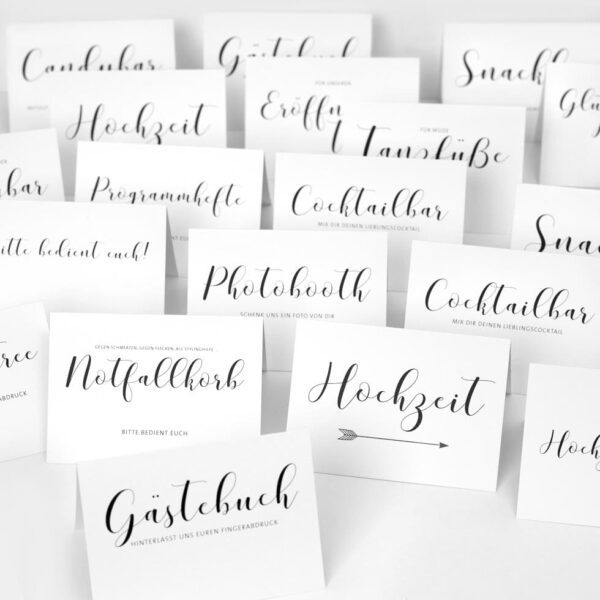 Candybar
Gästebuch
Snackb
Hochzeit
FÜR UNSEREN
Eröffn
t
FÜR MÜDE
Tanzfüße
Glü
bar
Programmhefte
Cocktailbar
MIX DIR DEINEN LIEBLINGSCOCKTAIL
Snac
itte bedient euch!
Photobooth
SCHENK UNS EIN FOTO VON DIR
Cocktailbar
MIX DIR DEINEN LIEBLINGSCOCKTAIL
ree
ABDRUCK
GEGEN SCHMERZEN, GEGEN FLECKEN, ALS STYLINGHILFE
Notfallkorb
BITTE BEDIENT EUCH
Hochzeit
Hoch
Gästebuch
HINTERLASST UNS EUREN FINGERABDRUCK